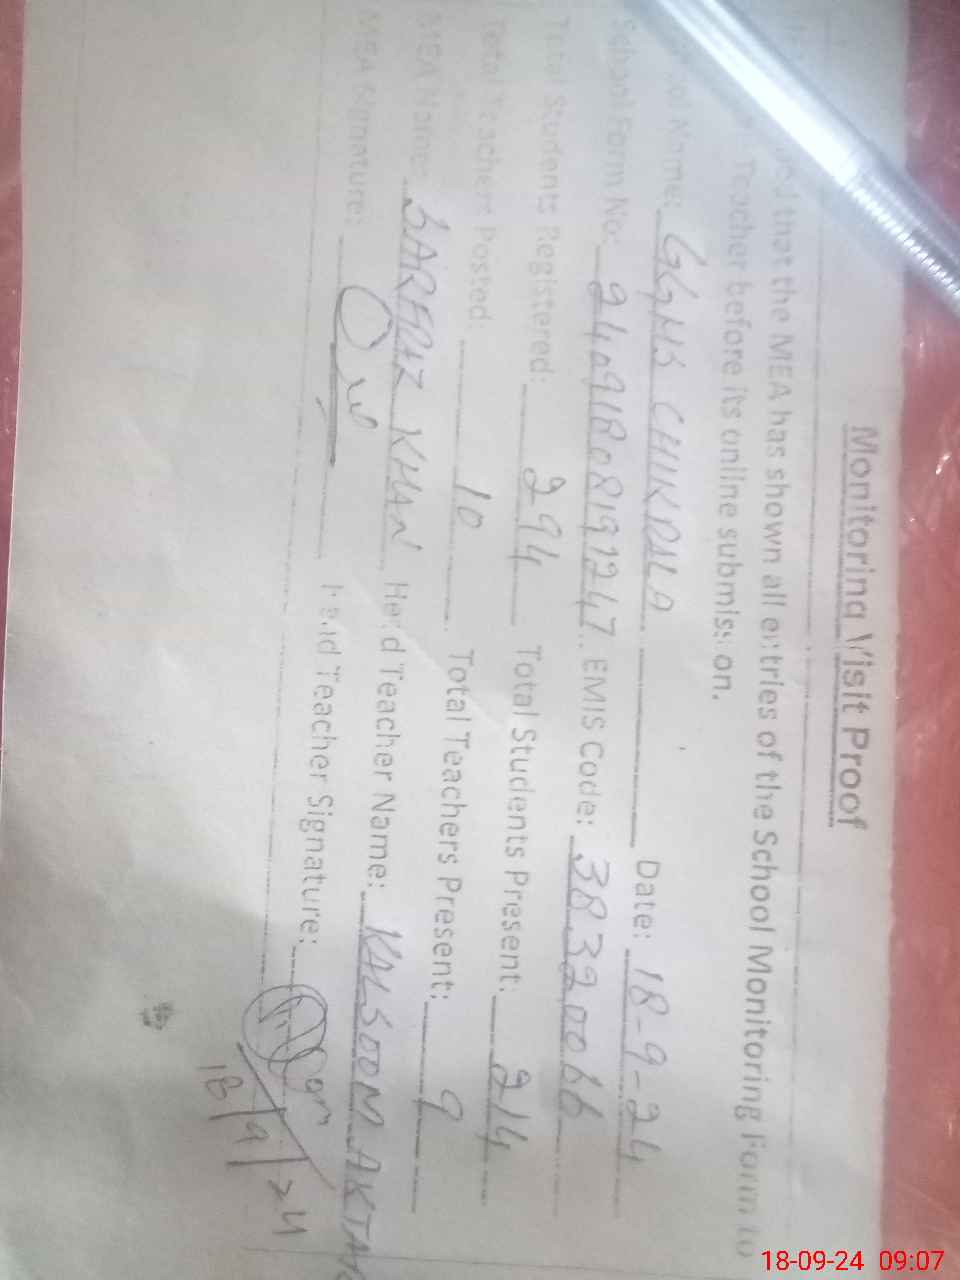 Monitoring Visit Proof
that the MEA has shown all entries of the School Monitoring Form to
Teacher before its online submission.
Name: GGHS CHIKDALA Date: 18-9-24
School Form No: 2409180819247 EMIS Code: 38320066
Total Students Registered: 294 Total Students Present: 214
Total Teachers Posted: 10 Total Teachers Present: 9
MEA Name: SARFRAZ KHAN Head Teacher Name: KALSOOM AKTAR
MEA Signature: Head Teacher Signature:
18/9/24
18-09-24 09:07